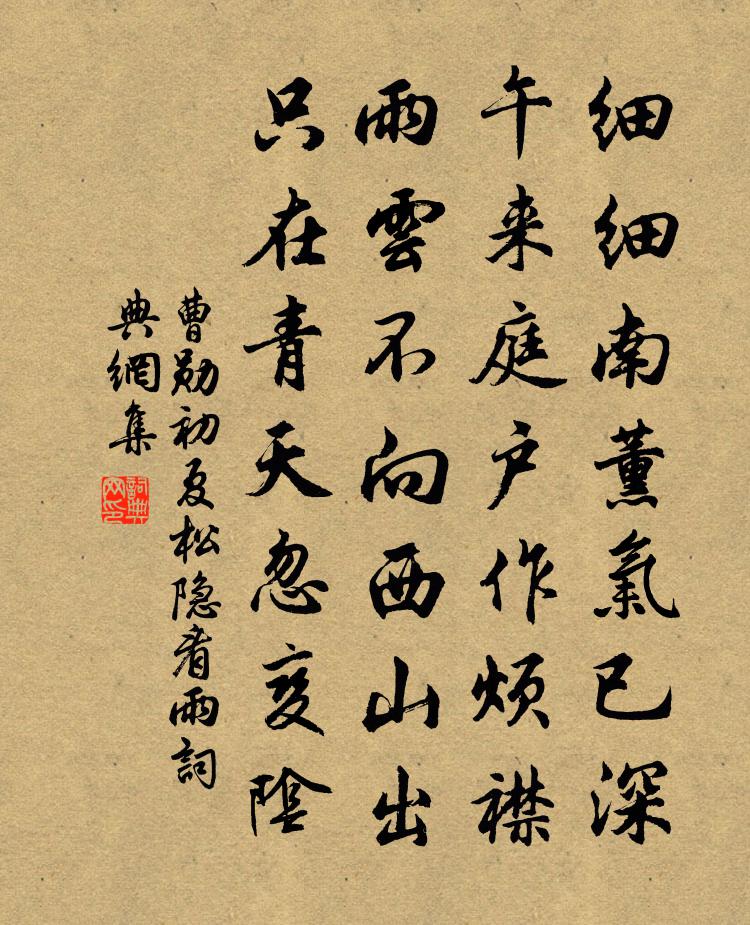 细细南薰氣已深
午来庭户作烦襟
雨雲不向西山出
只在青天忽变陰
曹勋初夏松隐看雨詞
典網集
詞典网印